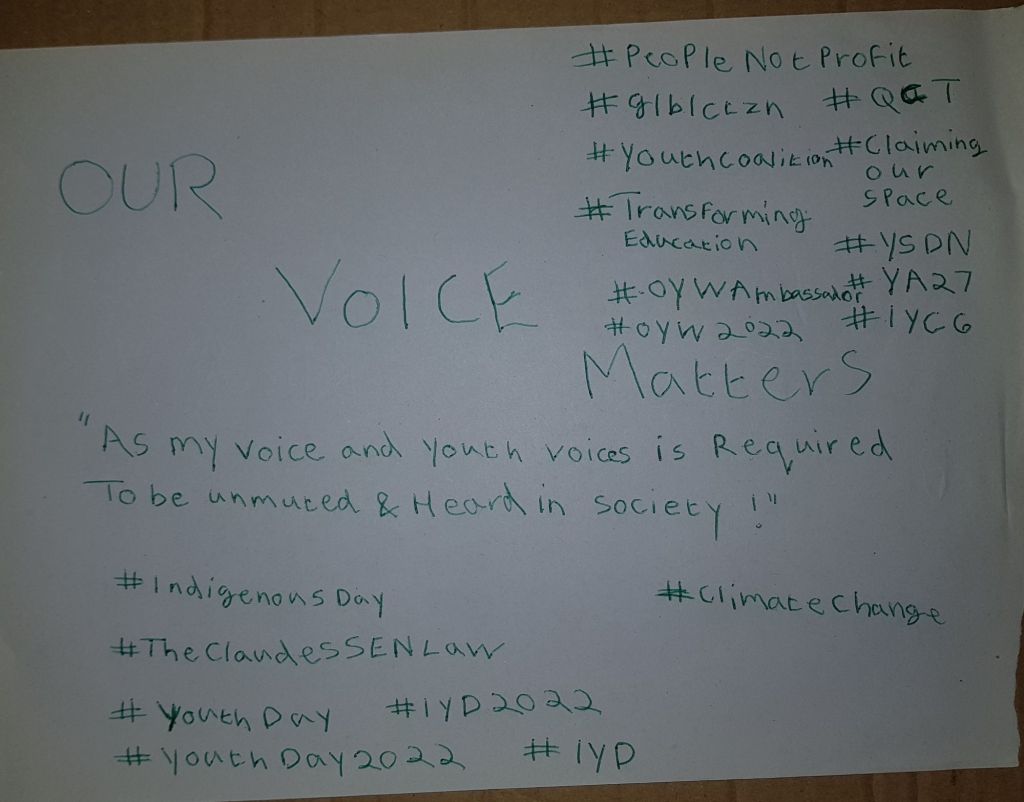 #PeoPle Not Profit
#glblctzn #QCT
#YouthCoalition #Claiming
our
space
#Transforming
Education
#YSDN
#OYWAmbassador #YA27
#OYW2022 #IYCG
OUR
VOICE
Matters
"As my voice and youth voices is Required
To be unmuted & Heard in society!"
#IndigenousDay
#ClimateChange
#TheClaudesSENLaw
#YouthDay #IYD2022
#YouthDay2022 #IYD